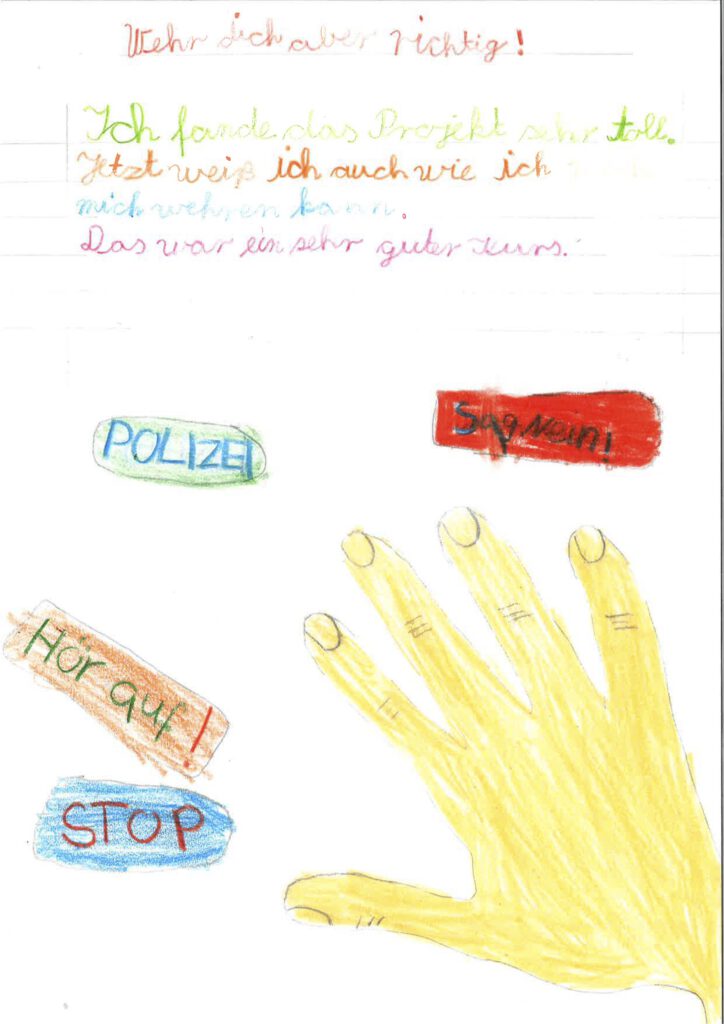 Wehr dich aber richtig!
Ich fande das Projekt sehr toll.
Jetzt weiß ich auch wie ich
mich wehren kann.
Das war ein sehr guter Kurs.
POLIZEI
Sag Nein!
Hör auf!
STOP